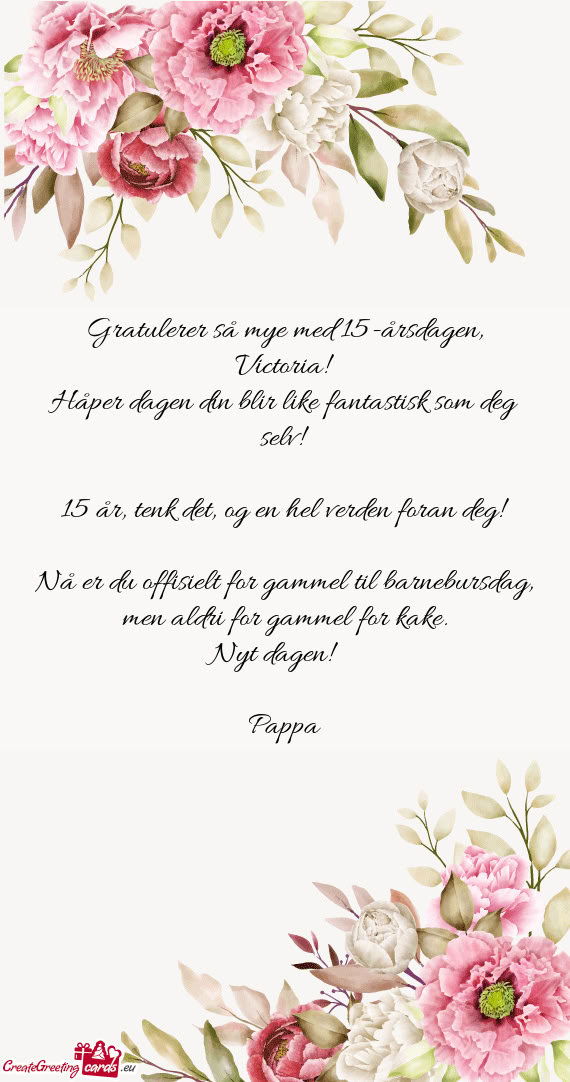 Gratulerer så mye med 15-årsdagen,
Victoria!
Håper dagen din blir like fantastisk som deg
selv!
15 år, tenk det, og en hel verden foran deg!
Nå er du offisielt for gammel til barnebursdag,
men aldri for gammel for kake.
Nyt dagen!
Pappa
CreateGreeting cards .eu